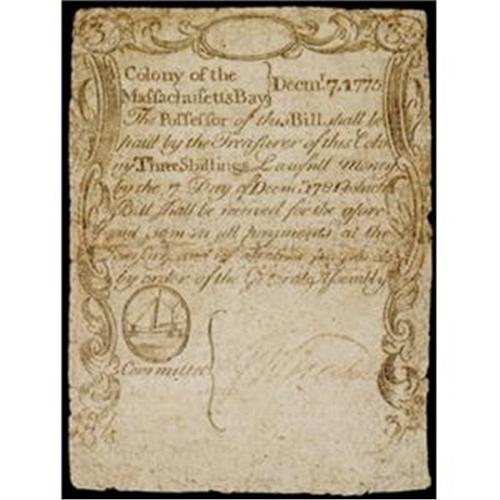 3 3
Colony of the } Decmr. 7. 1775
Massachusetts Bay
The Possessor of this Bill shall be
paid by the Treasurer of this Colo
ny Three Shillings Lawfull money
by the 7 Day of Decmr. 1781 which
Bill shall be received for the afore
said sum in all payments at the
Treasury and
by order of the General Assembly
Committee {
3 3